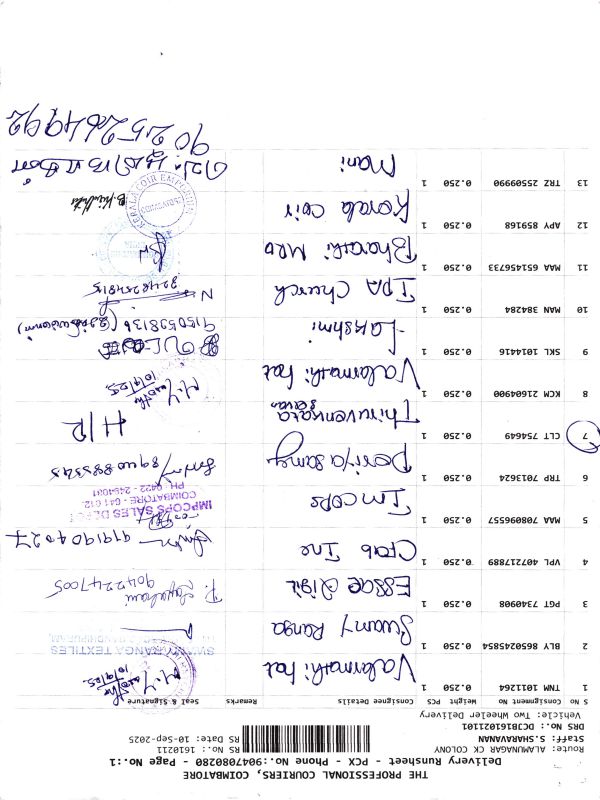 THE PROFESSIONAL COURIERS, COIMBATORE
Delivery Runsheet - PCX - Phone No.:9047080280 - Page No.:1
Route: ALAMUNAGAR CK COLONY
Staff: S.SHARAVANAN
DRS No.: DCJ3B161021101
Vehicle: Two Wheeler Delivery
RS No.: 1610211
RS Date: Sep-10-2025
S No Consignment No Weight PCS Consignee Details Remarks Seal & Signature
1 TNM 1011264 0.250 1 Valarmathi hat 10/9/25
2 BLY 8650245854 0.250 1 Swamy Ranga
SWAMY RANGA TEXTILES
3 PGT 7340908 0.250 1 ESSAE Digit 9042247005
4 VPL 407217889 0.250 1 Crab Inc 9191904027
5 MAA 708096557 0.250 1 Imcops
IMPCOPS SALES DEPOT
COIMBATORE - 641 012.
6 TRP 7013624 0.250 1 Periyasamy 8940885345
7 CLT 754649 0.250 1 Thiruvenkata H/R
8 KCM 21604900 0.250 1 Valarmathi hat 10/9/25
9 SKL 1014416 0.250 1 Lakshmi 9150598136
10 MAN 384284 0.250 1 IPA Church
11 MAA 651456733 0.250 1 Bharathi MRO
12 APY 859168 0.250 1 Kerala Coir
KERALA COIR EMPORIUM
13 TRZ 25509990 0.250 1 Mani
9025264992